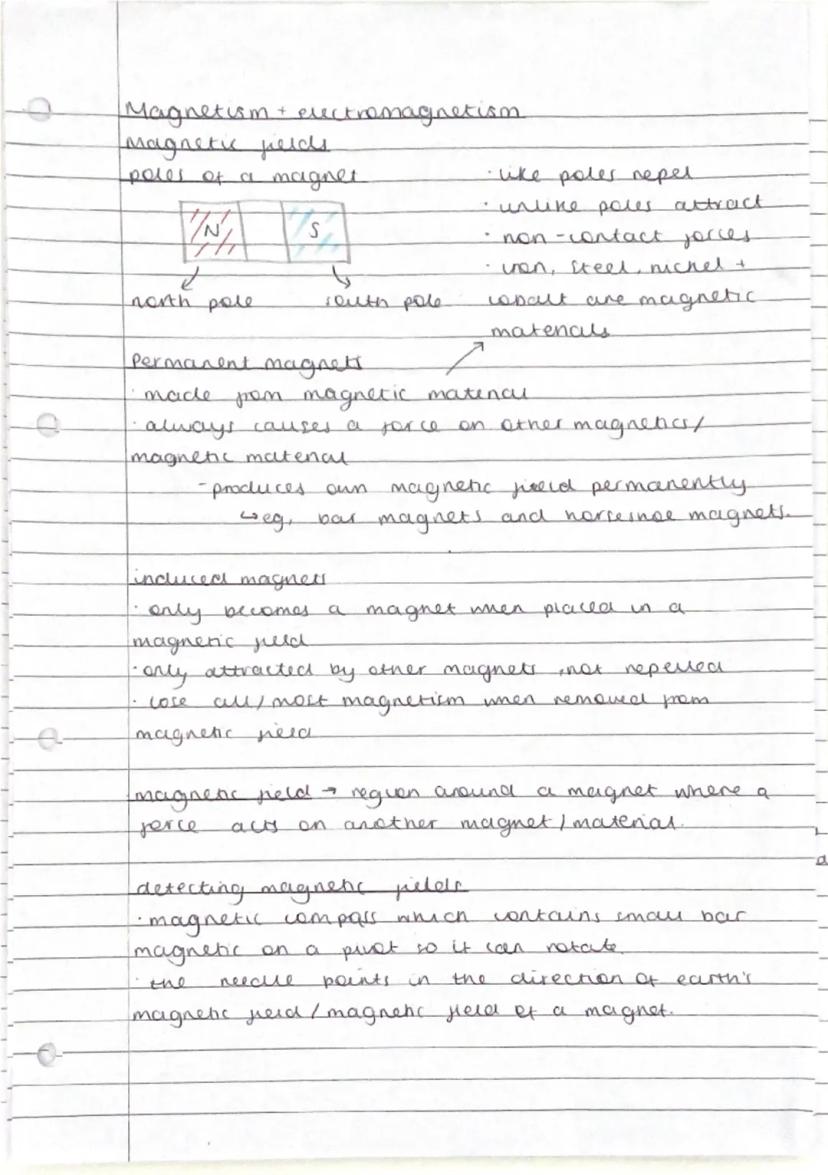 Magnetism + electromagnetism
Magnetic fields
poles of a magnet
N S
north pole south pole
· like poles repel
· unlike poles attract
· non-contact forces
· iron, steel, nickel +
cobalt are magnetic
materials
Permanent magnets
· made from magnetic material
· always causes a force on other magnetics/
magnetic material
- produces own magnetic field permanently
↳ eg, bar magnets and horseshoe magnets.
induced magnets
· only becomes a magnet when placed in a
magnetic field
· only attracted by other magnets, not repelled
· lose all/most magnetism when removed from
magnetic field
magnetic field → region around a magnet where a
force acts on another magnet/material.
detecting magnetic fields
· magnetic compass which contains small bar
magnetic on a pivot so it can rotate.
· the needle points in the direction of earth's
magnetic field/magnetic field of a magnet.